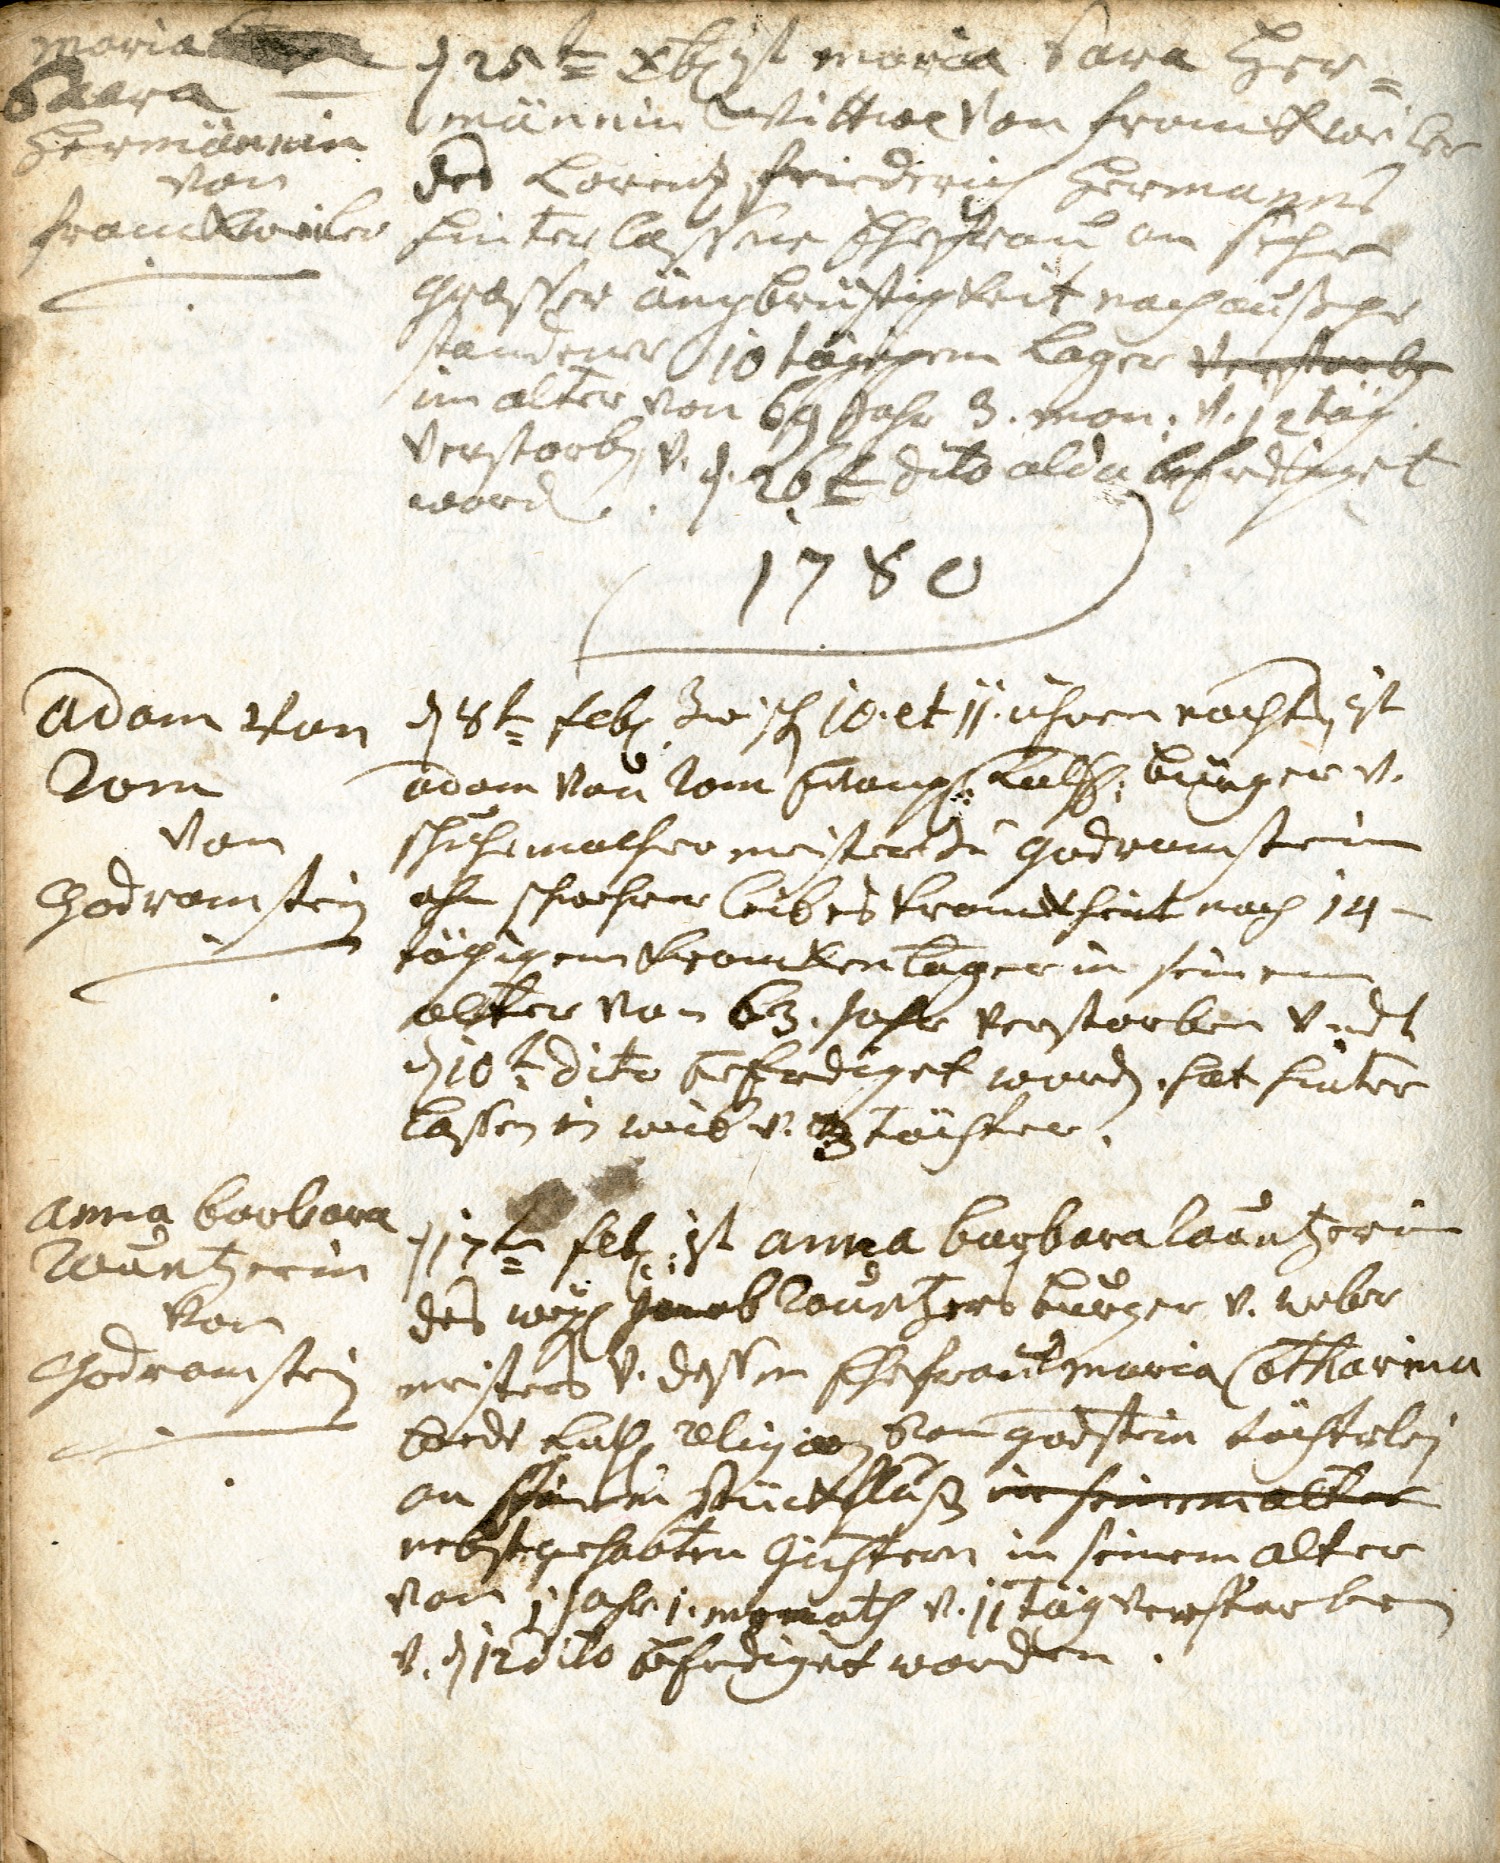 maria
Saara
Hermännin
von
franckweiler
d 25t Xbr ist maria Sara Her=
männin Wittwe Von franckweiler
des Lorentz friederich Hermanns
hinterlassene Ehefrau an sehr
grosser ängbrüstigkeit nach außge
standener 10 tägigem Lager verstorb
im alter von 69 Jahr 3. mon. v. 12 täg.
verstorb, v. d. 26t dito alda beerdiget
word.
1780
adam Van
Rom
von
Godramstein
d 8t feb. zwisch 10. et 11. uhren nachts ist
adam Van Rom Evang. Luth. burger v.
schuhemacher meister zu Godramstein
ahn schwehrer leibes kranckheit nach 14
tägigem krancken lager in seinem
alter von 63. Jahr verstorben Vndt
d 10t dito beerdiget word. hat hinter
lassen ein weib v. 3 töchter.
anna barbara
Launtzerin
von
Godramstein
d 17t feb. ist anna barbara Launtzerin
des weyl Jacob Launtzers burger v. weber
meisters v. dessen Ehefrau maria Catharina
beede Luth religion von godstein töchterlein
an stückfluß in seinem alter
nebst gehabten Gichtern in seinem alter
von 1 Jahr. 1. monath v. 11 täg verstorben
v. d 12 dito beerdiget worden.